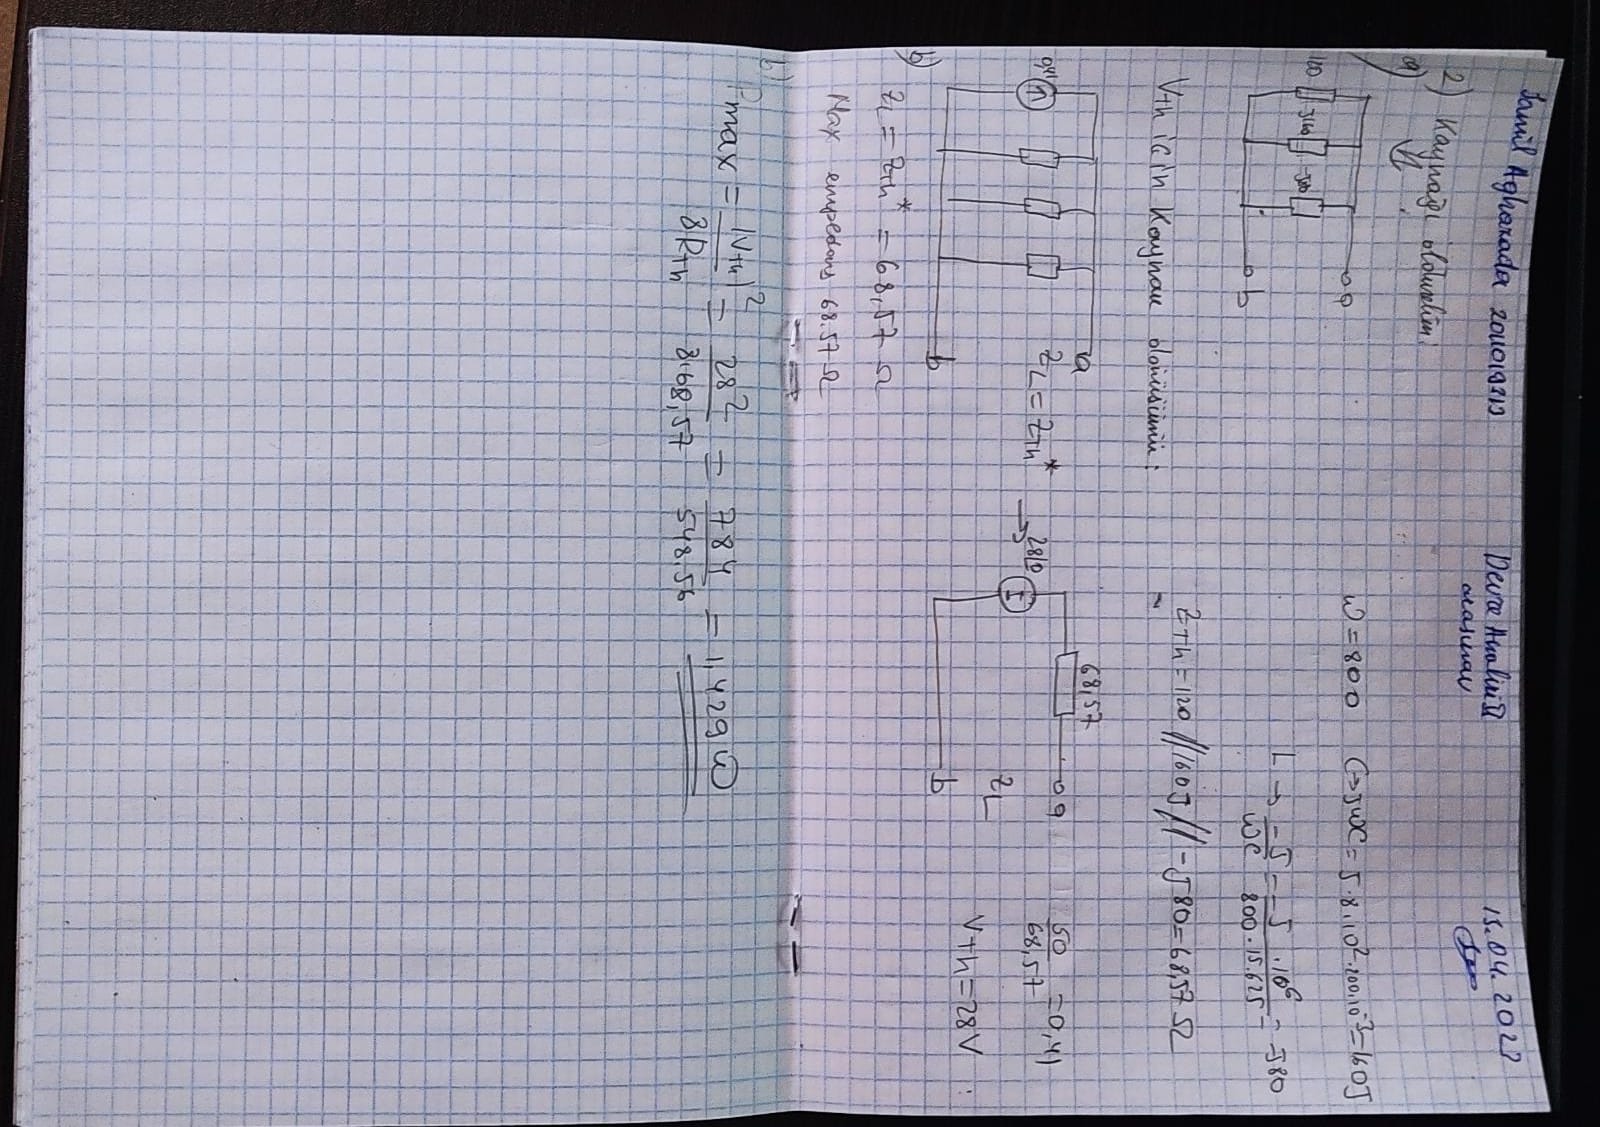 Jamil Agharada 2011019313 Devre Analizi II 15.04.2023
arasınav
2) Kaynağı öldürelim:
a)
a
120 J160 -J80
b
W=800 C→JWC = J.8.10².200.10⁻³=160J
L → -J/WC = -J.10⁶/800.15.625 = -J80
Zth = 120 // 160J // -J80 = 68,57 Ω
Vth için Kaynak dönüşümü:
0,41 a
ZL = Zth*
b
→ 28∠0 68,57 a
ZL
b
50/68,57 = 0,41
Vth = 28V
b)
ZL = Zth* = 68,57 Ω
Max empedans 68.57 Ω
b)
Pmax = |Vth|²/8Rth = 28²/8.68,57 = 784/548.56 = 1,429 W